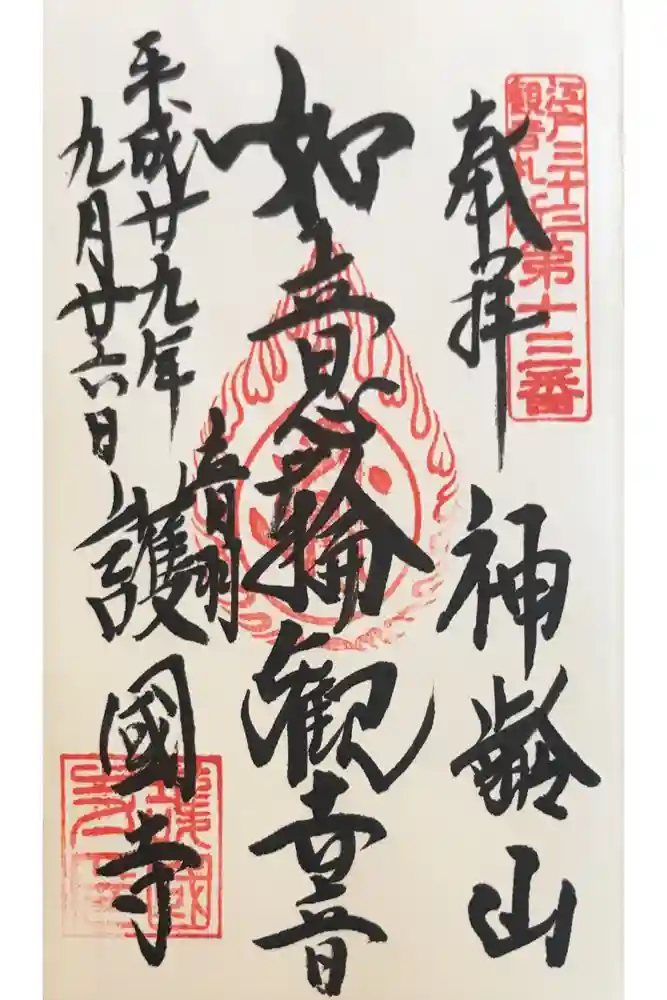 江戸三十三
観音札所
第十三番
奉拝
神齢山
如意輪観世音
平成廿九年
九月廿六日
音羽
護國寺